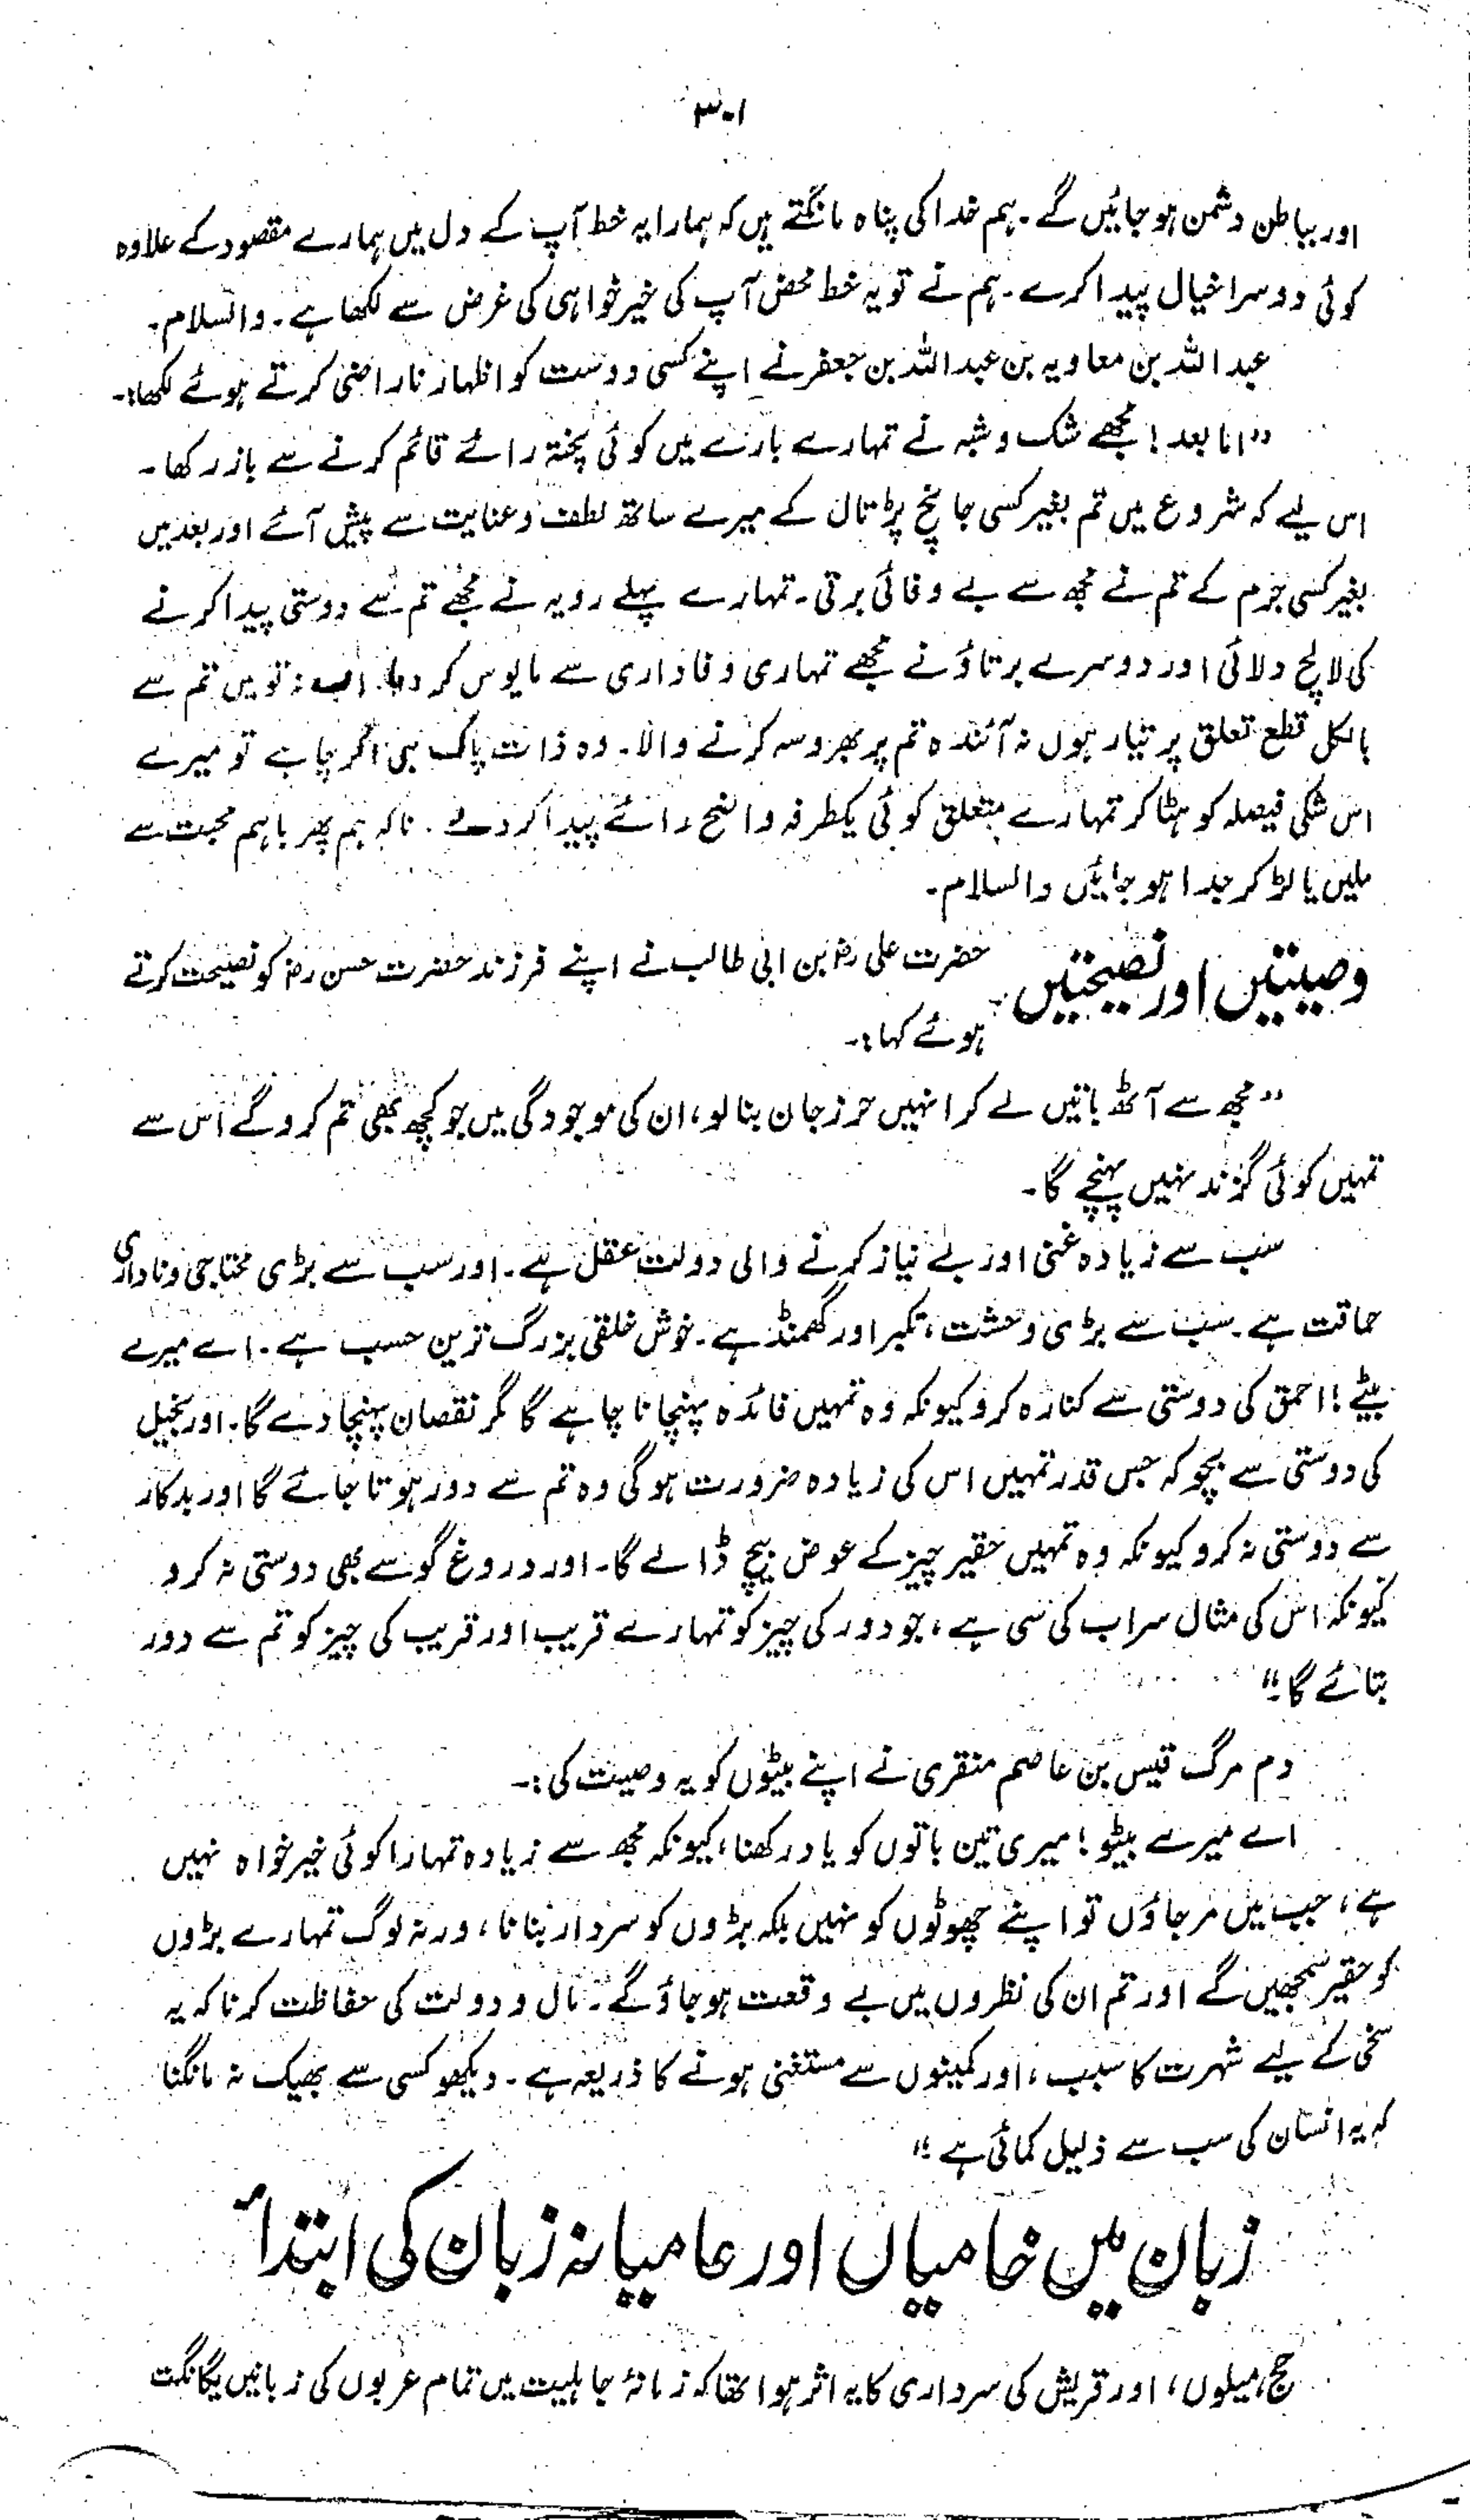 ۳۰۱
اور بباطن دشمن ہو جائیں گے۔ ہم خدا کی پناہ مانگتے ہیں کہ ہمارا یہ خط آپ کے دل میں ہمارے مقصود کے علاوہ
کوئی دوسرا خیال پیدا کرے۔ ہم نے تو یہ خط محض آپ کی خیر خواہی کی غرض سے لکھا ہے۔ والسلام۔
عبد اللہ بن معاویہ بن عبد اللہ بن جعفر نے اپنے کسی دوست کو اظہار ناراضی کرتے ہوئے لکھا:-
"اما بعد! مجھے شک و شبہ نے تمہارے بارے میں کوئی پختہ رائے قائم کرنے سے باز رکھا۔
اس لیے کہ شروع میں تم بغیر کسی جانچ پڑتال کے میرے ساتھ لطف و عنایت سے پیش آئے اور بعد میں
بغیر کسی جرم کے تم نے مجھ سے بے وفائی برتی۔ تمہارے پہلے رویہ نے مجھے تم سے دوستی پیدا کرنے
کی لالچ دلائی اور دوسرے برتاؤ نے مجھے تمہاری وفاداری سے مایوس کر دیا۔ اب نہ تو میں تم سے
بالکل قطع تعلق پر تیار ہوں نہ آئندہ تم پر بھروسہ کرنے والا۔ وہ ذات پاک ہی اگر چاہے تو میرے
اس شکی فیصلہ کو ہٹا کر تمہارے متعلق کوئی یکطرفہ واضح رائے پیدا کر دے۔ تاکہ ہم پھر باہم محبت سے
ملیں یا لڑ کر جدا ہو جائیں والسلام۔
وصیتیں اور نصیحتیں حضرت علی رضؓ بن ابی طالب نے اپنے فرزند حضرت حسن رضؓ کو نصیحت کرتے
ہوئے کہا:-
"مجھ سے آٹھ باتیں لے کر انہیں حرز جان بنا لو، ان کی موجودگی میں جو کچھ بھی تم کرو گے اس سے
تمہیں کوئی گزند نہیں پہنچے گا۔
سب سے زیادہ غنی اور بے نیاز کرنے والی دولت عقل ہے۔ اور سب سے بڑی محتاجی و ناداری
حماقت ہے۔ سب سے بڑی وحشت، تکبر اور گھمنڈ ہے۔ خوش خلقی بزرگ ترین حسب ہے۔ اے میرے
بیٹے! احمق کی دوستی سے کنارہ کرو کیونکہ وہ تمہیں فائدہ پہنچانا چاہے گا مگر نقصان پہنچا دے گا۔ اور بخیل
کی دوستی سے بچو کہ جس قدر تمہیں اس کی زیادہ ضرورت ہوگی وہ تم سے دور ہوتا جائے گا اور بدکار
سے دوستی نہ کرو کیونکہ وہ تمہیں حقیر چیز کے عوض بیچ ڈالے گا۔ اور دروغ گو سے بھی دوستی نہ کرو
کیونکہ اس کی مثال سراب کی سی ہے، جو دور کی چیز کو تمہارے قریب اور قریب کی چیز کو تم سے دور
بتائے گا۔"
دم مرگ قیس بن عاصم منقری نے اپنے بیٹوں کو یہ وصیت کی:-
اے میرے بیٹو! میری تین باتوں کو یاد رکھنا، کیونکہ مجھ سے زیادہ تمہارا کوئی خیر خواہ نہیں
ہے، جب میں مر جاؤں تو اپنے چھوٹوں کو نہیں بلکہ بڑوں کو سردار بنانا، ورنہ لوگ تمہارے بڑوں
کو حقیر سمجھیں گے اور تم ان کی نظروں میں بے وقعت ہو جاؤ گے۔ مال و دولت کی حفاظت کرنا کہ یہ
سخی کے لیے شہرت کا سبب، اور کمینوں سے مستغنی ہونے کا ذریعہ ہے۔ دیکھو کسی سے بھیک نہ مانگنا
کہ یہ انسان کی سب سے ذلیل کمائی ہے"
زبان میں خامیاں اور عامیانہ زبان کی ابتداء
حج، میلوں، اور قریش کی سرداری کا یہ اثر ہوا تھا کہ زمانۂ جاہلیت میں تمام عربوں کی زبانیں یگانگت